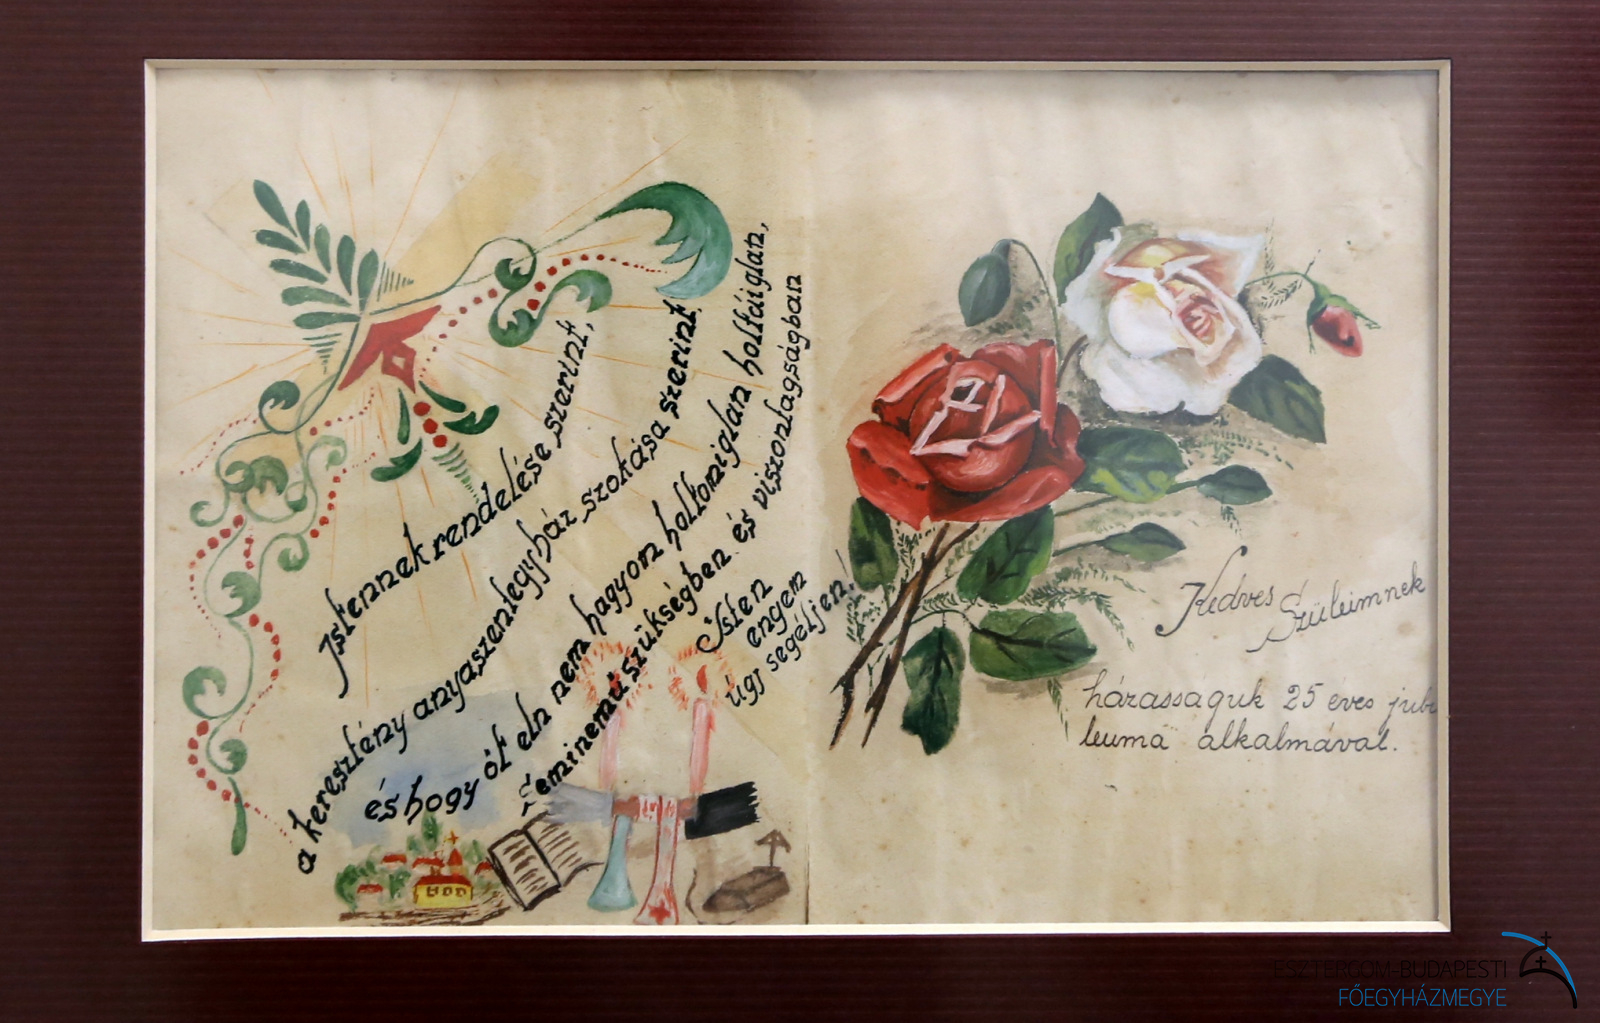 Istennek rendelése szerint,
a keresztény anyaszentegyház szokása szerint
és hogy őt el nem hagyom holtomiglan holtáiglan,
Seminemű szükségben és viszontagságban
Isten
engem
úgy segéljen.
Kedves Szüleimnek
házasságuk 25 éves jubi
leuma alkalmával.
ESZTERGOM-BUDAPESTI
FŐEGYHÁZMEGYE